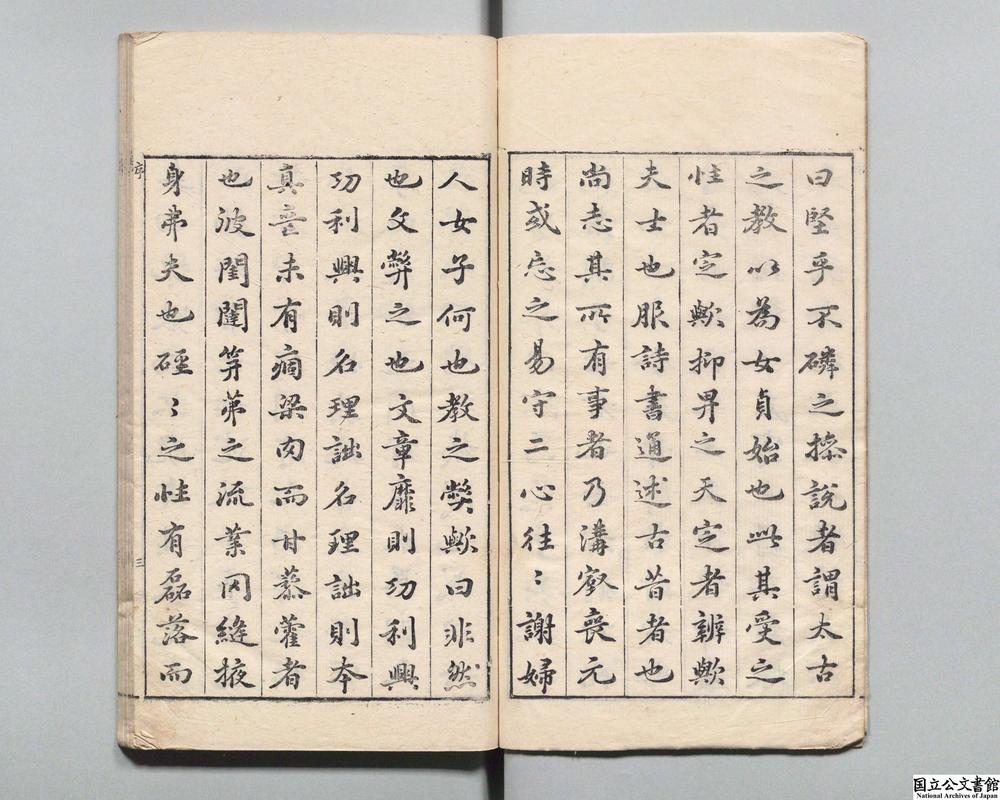 曰堅乎不磷之操說者謂太古
之教以為女貞始也此其受之
性者定歟抑畀之天定者辨歟
夫士也服詩書通述古昔者也
尚志其所有事者乃溝壑喪元
時或忘之易守二心往〻謝婦
人女子何也教之獘歟曰非然
也文弊之也文章靡則功利興
功利興則名理詘名理詘則本
真喪未有痼梁肉而甘藜藿者
也彼閨闥笄茀之流業因縫掖
身弗夫也硜〻之性有磊落而
序
三
国立公文書館
National Archives of Japan